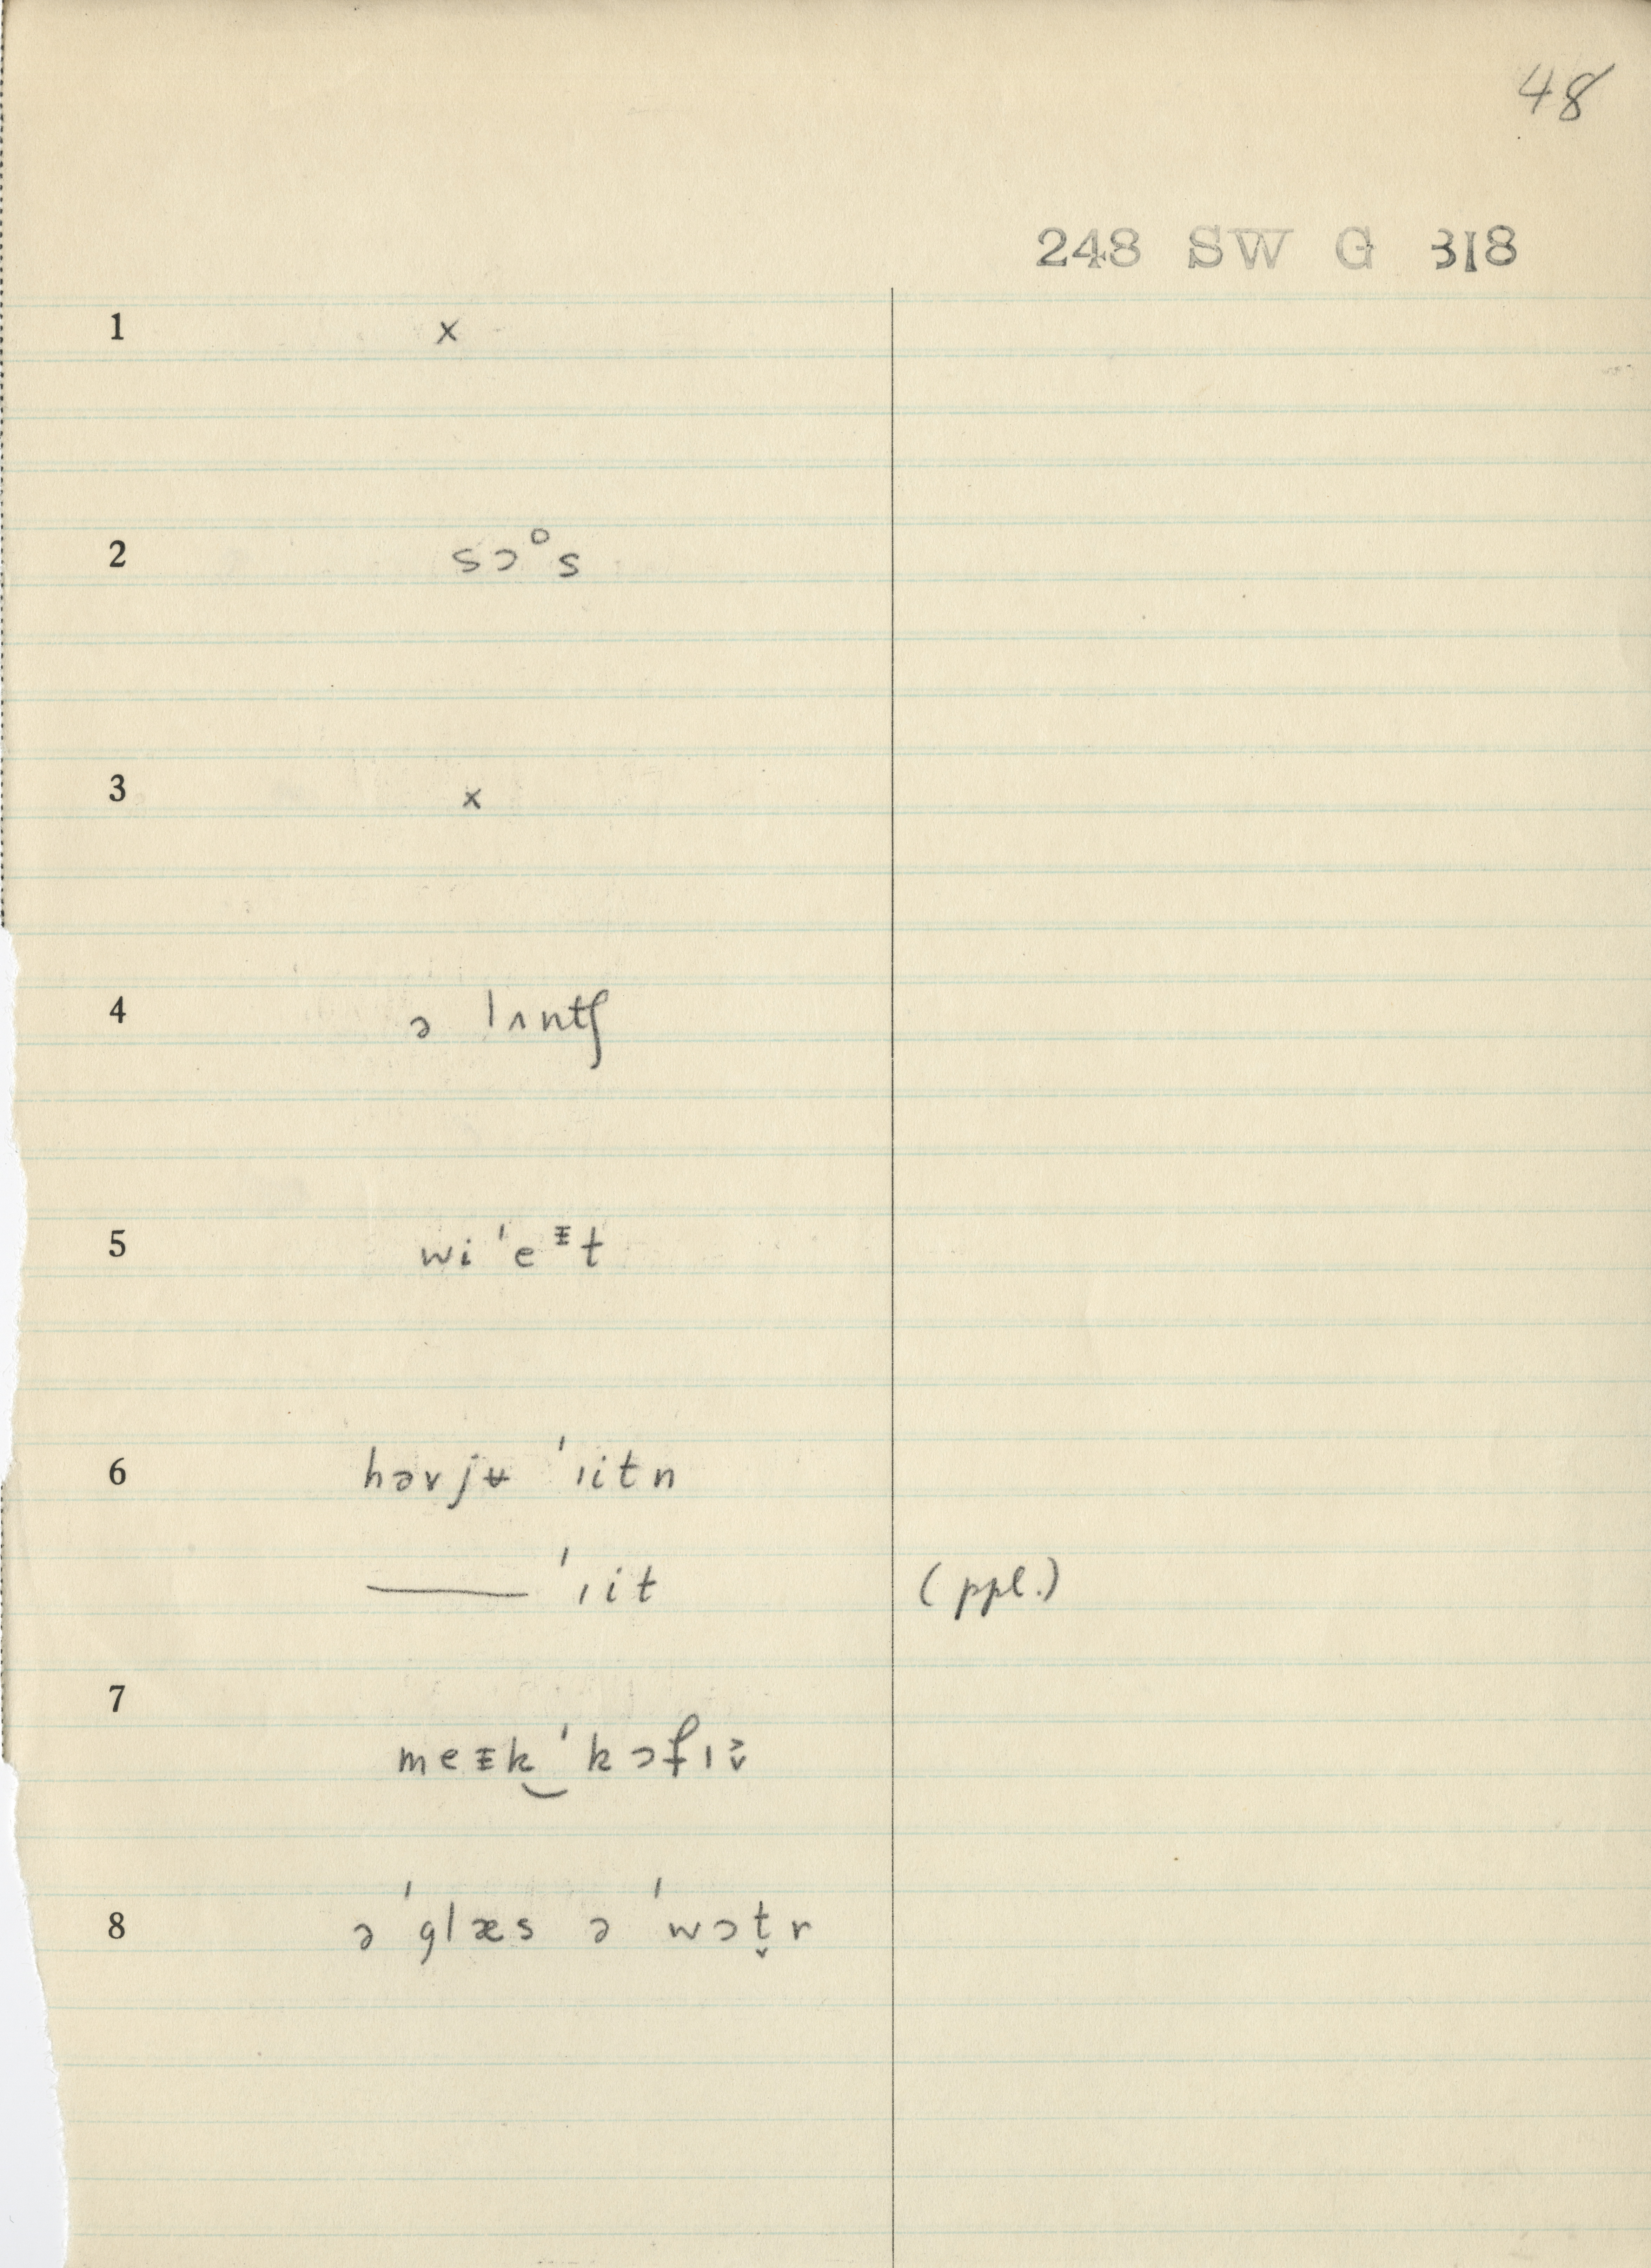 48
248 SW G 318
1 x
2 sɔᵒs
3 x
4 ə lʌntʃ
5 wi ˈeᵻt
6 həvjʉ ˈıitn
—— ˈıit (ppl.)
7 meᵻk‿ˈkɔfı̬˃
8 ə ˈglæs ə ˈwɔt̬r